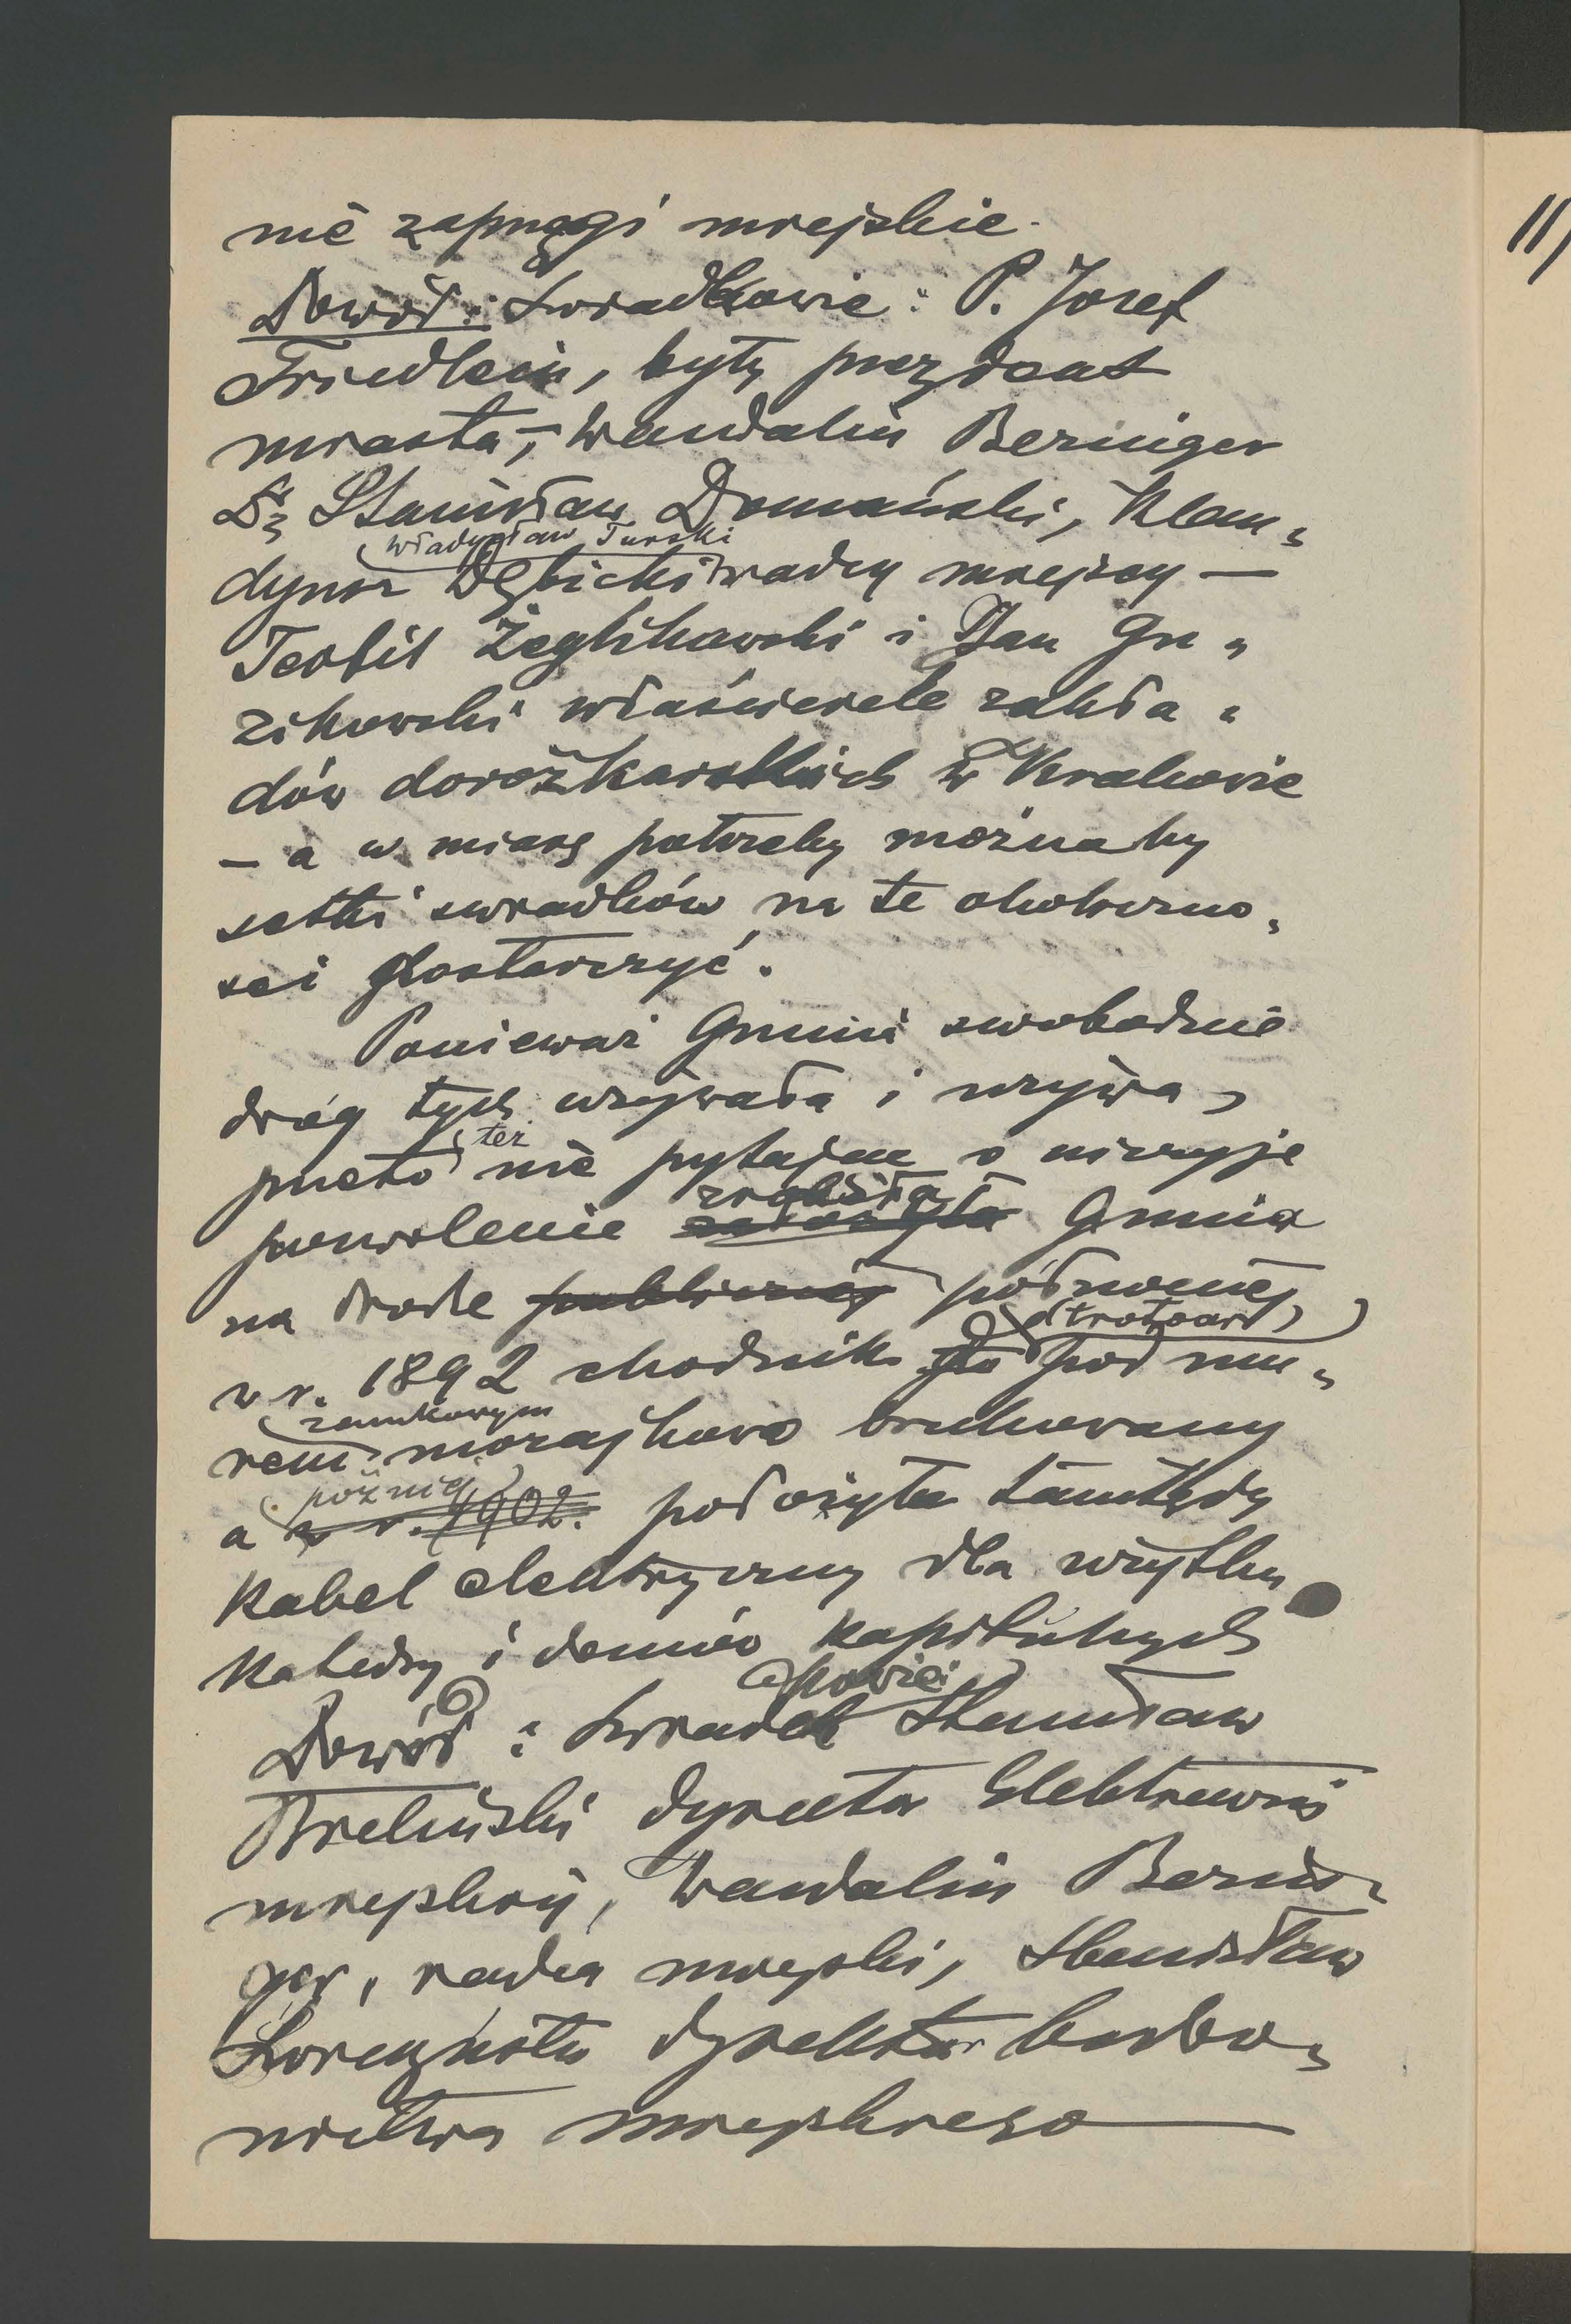 nie zaprzęgi miejskie.
Dowód: Świadkowie: P. Józef
Friedlein, były prezydent
miasta, – Wandalin Beringer
Dr Stanisław Domański, Klau-
Władysław Turski
dyusz Dębicki radcy miejscy —
Teofil Żeglikowski i Jan Gu-
zikowski właściciele zakła-
dów dorożkarskich w Krakowie
– a w miarę potrzeby możnaby
setki świadków na te okoliczno-
ści dostarczyć.
Ponieważ Gmina swobodnie
dróg tych używała i używa,
też
przeto nie pytając o niczyje
zrobiła
pozwolenie założyła Gmina
na drodze publicznej północnej,
(trotoar)
w r. 1892 chodnik pod mu-
zamkowym
rem mozajkowo brukowany
później
a w r. 1902. położyła tamtędy
kabel elektryczny dla użytku
katedry i domów kapitulnych
owie:
Dowód: Świadek Stanisław
Bieliński dyrektor Elektrowni
miejskiej, Wandalin Berin-
ger, radca miejski, Stanisław
dyrektor budow-
nictwa miejskiego —